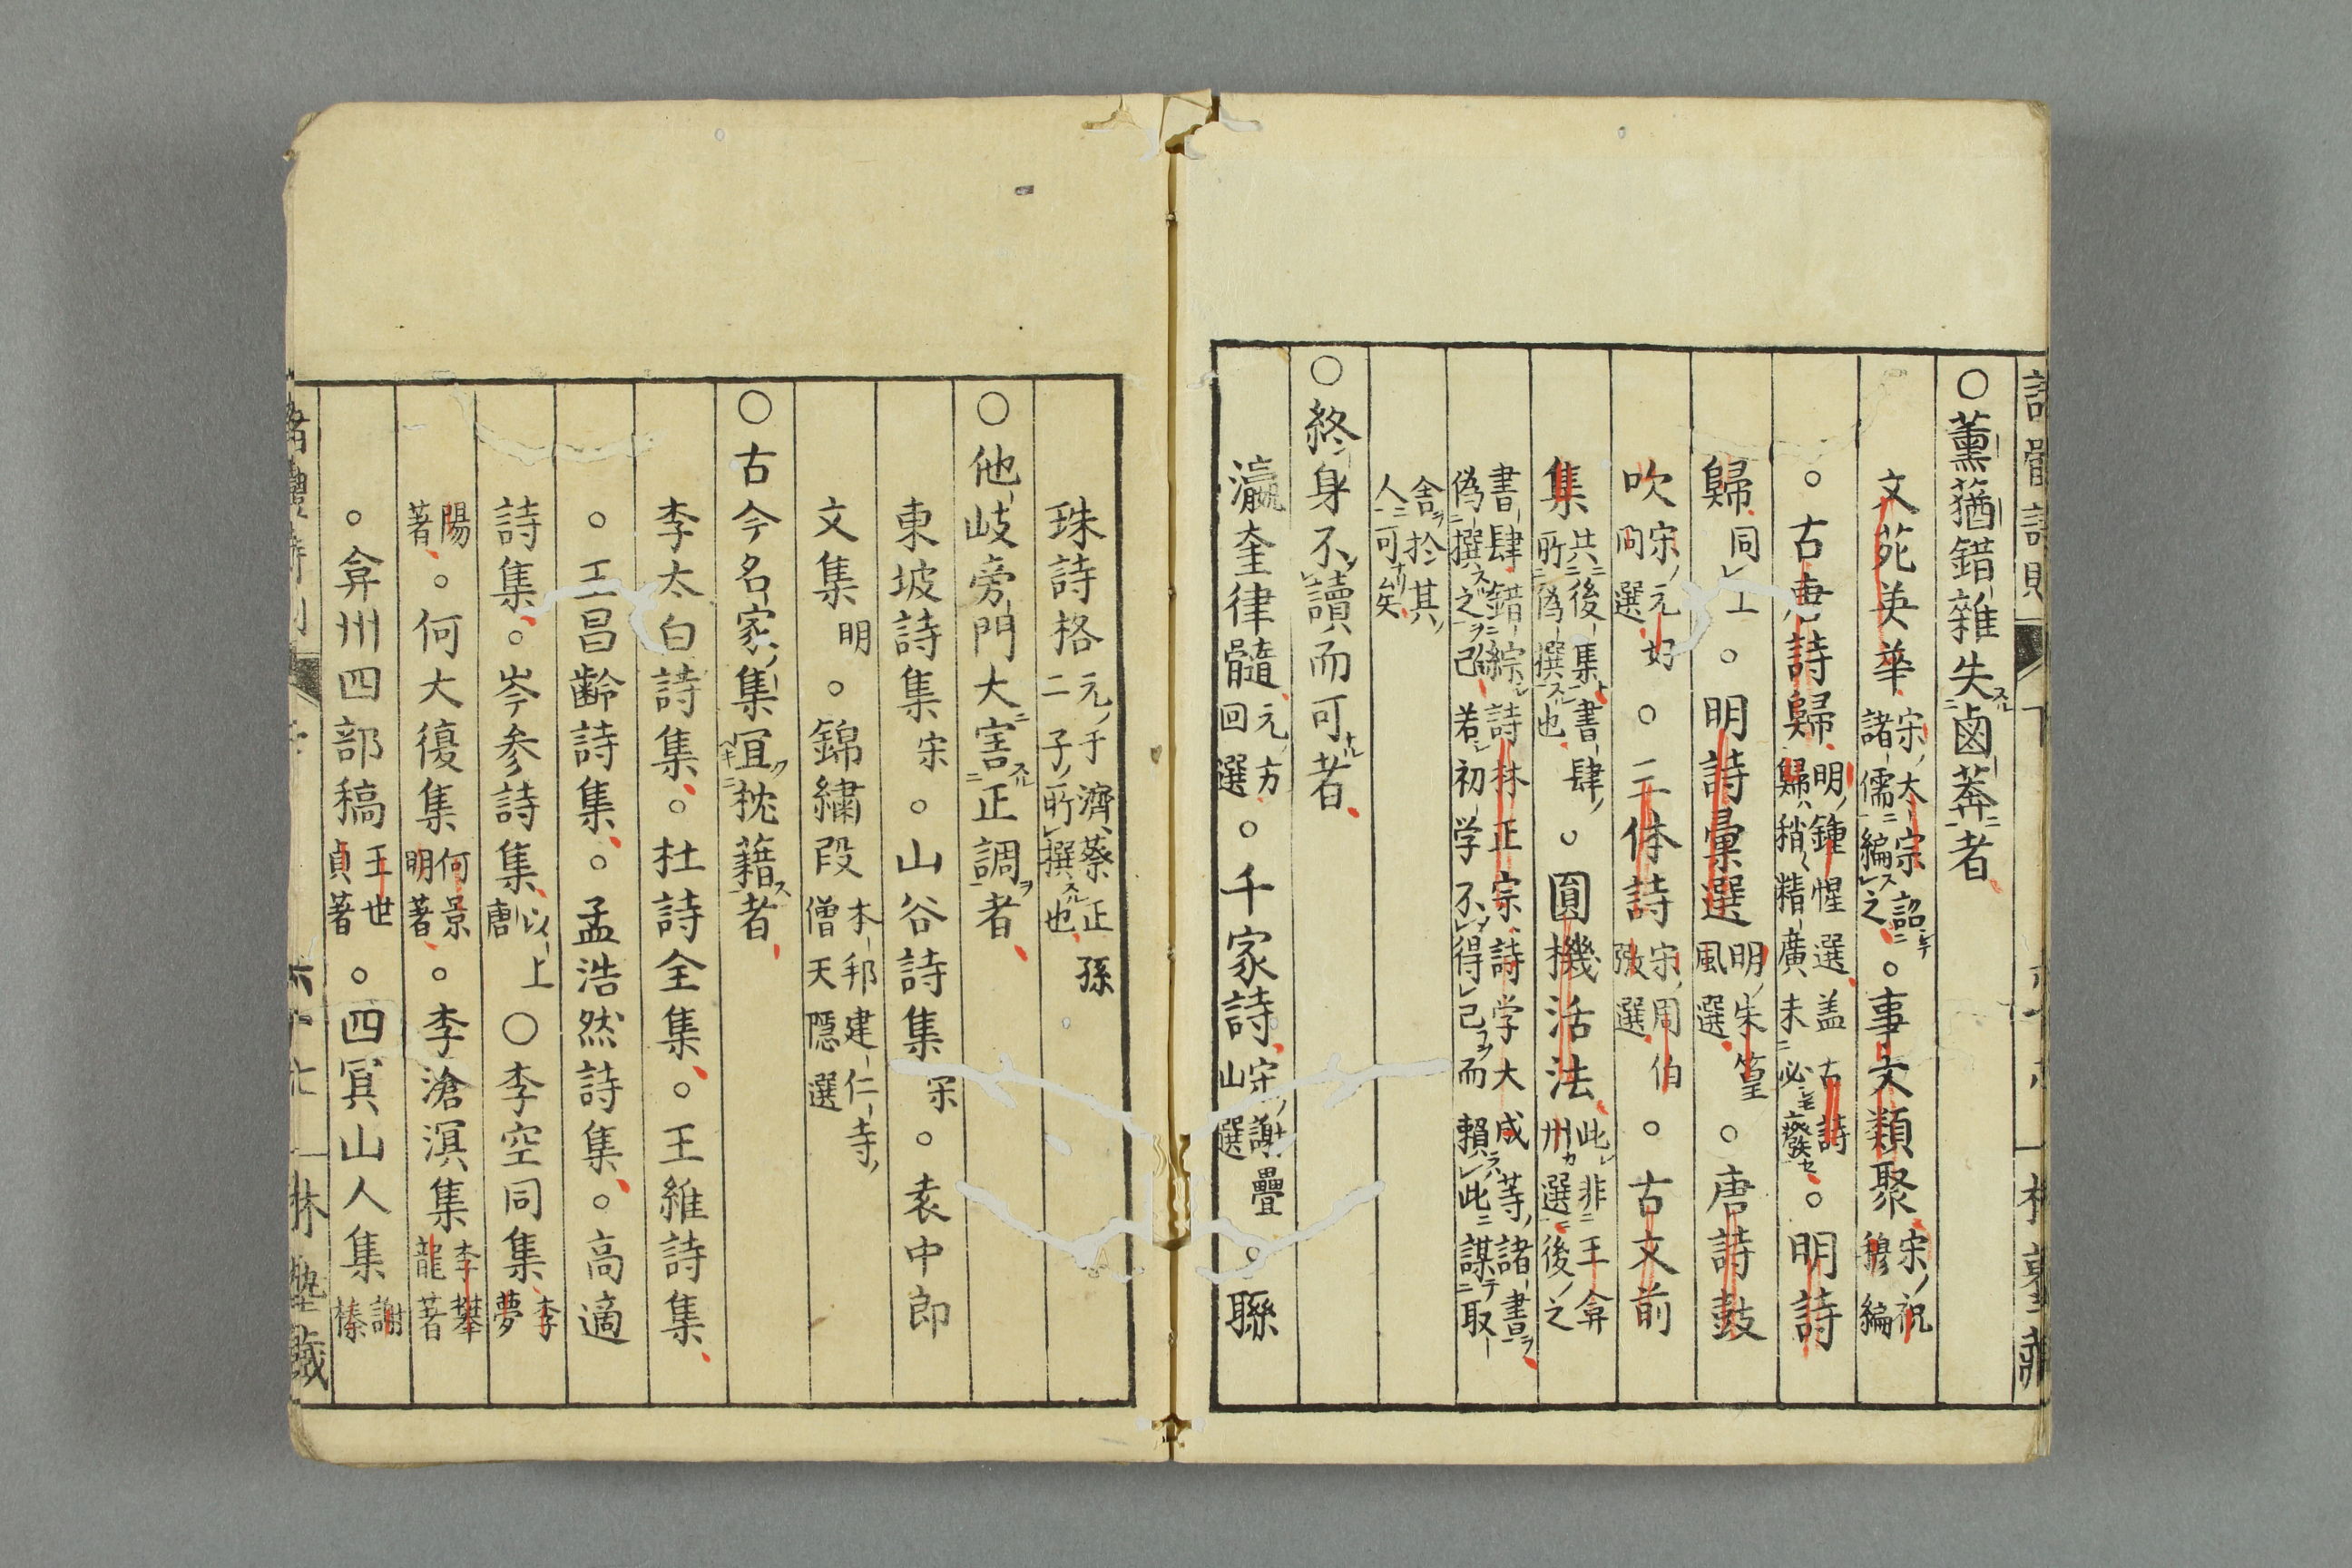 ○薫蕕錯雜失鹵莽者
文苑英華宋ノ大宗詔諸儒編之。事文類聚宋ノ祝穆編
。古唐詩歸明ノ鍾惺選盖古詩歸ハ稍精廣未必癈。明詩
歸同上。明詩彙選明ノ朱篁風選。唐詩鼓
吹宋ノ元好問選。三体詩宋ノ周伯弜選。古文前
集共後集書肆ノ所偽撰也。圓機活法此非王弇州カ選後ノ之
書肆錯綜詩林正宗詩学大成等ノ諸書ヲ偽撰之已若初学不得已而賴此謀テ取
舎ヲ於其ノ人可矣
○終身不讀而可者
瀛奎律髓元ノ方回選。千家詩宋ノ謝疊山選。聯
珠詩格元ノ于濟蔡正孫二子ノ所撰也
○他岐旁門大害正調者
東坡詩集宋。山谷詩集宋。袁中郎
文集明。錦繡段本邦建仁寺ノ僧天隱選
○古今名家ノ集冝枕藉者
李太白詩集。杜詩全集。王維詩集
。王昌齡詩集。孟浩然詩集。高適
詩集。岑参詩集以上唐○李空同集李夢
陽著。何大復集何景明著。李滄溟集李攀龍著
。弇州四部稿王世貞著。四冥山人集謝榛